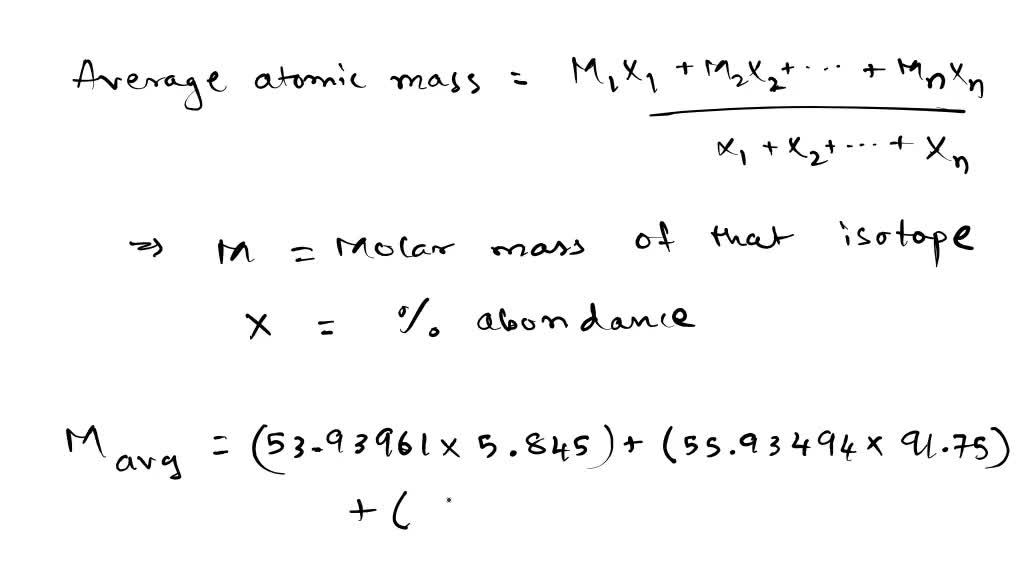 Average atomic mass = M₁X₁ + M₂X₂ + ... + MₙXₙ
x₁ + x₂ + ... + Xₙ
⇒ M = Molar mass of that isotope
X = % abondance
M avg = (53.93961 × 5.845) + (55.93494 × 91.75)
+ (